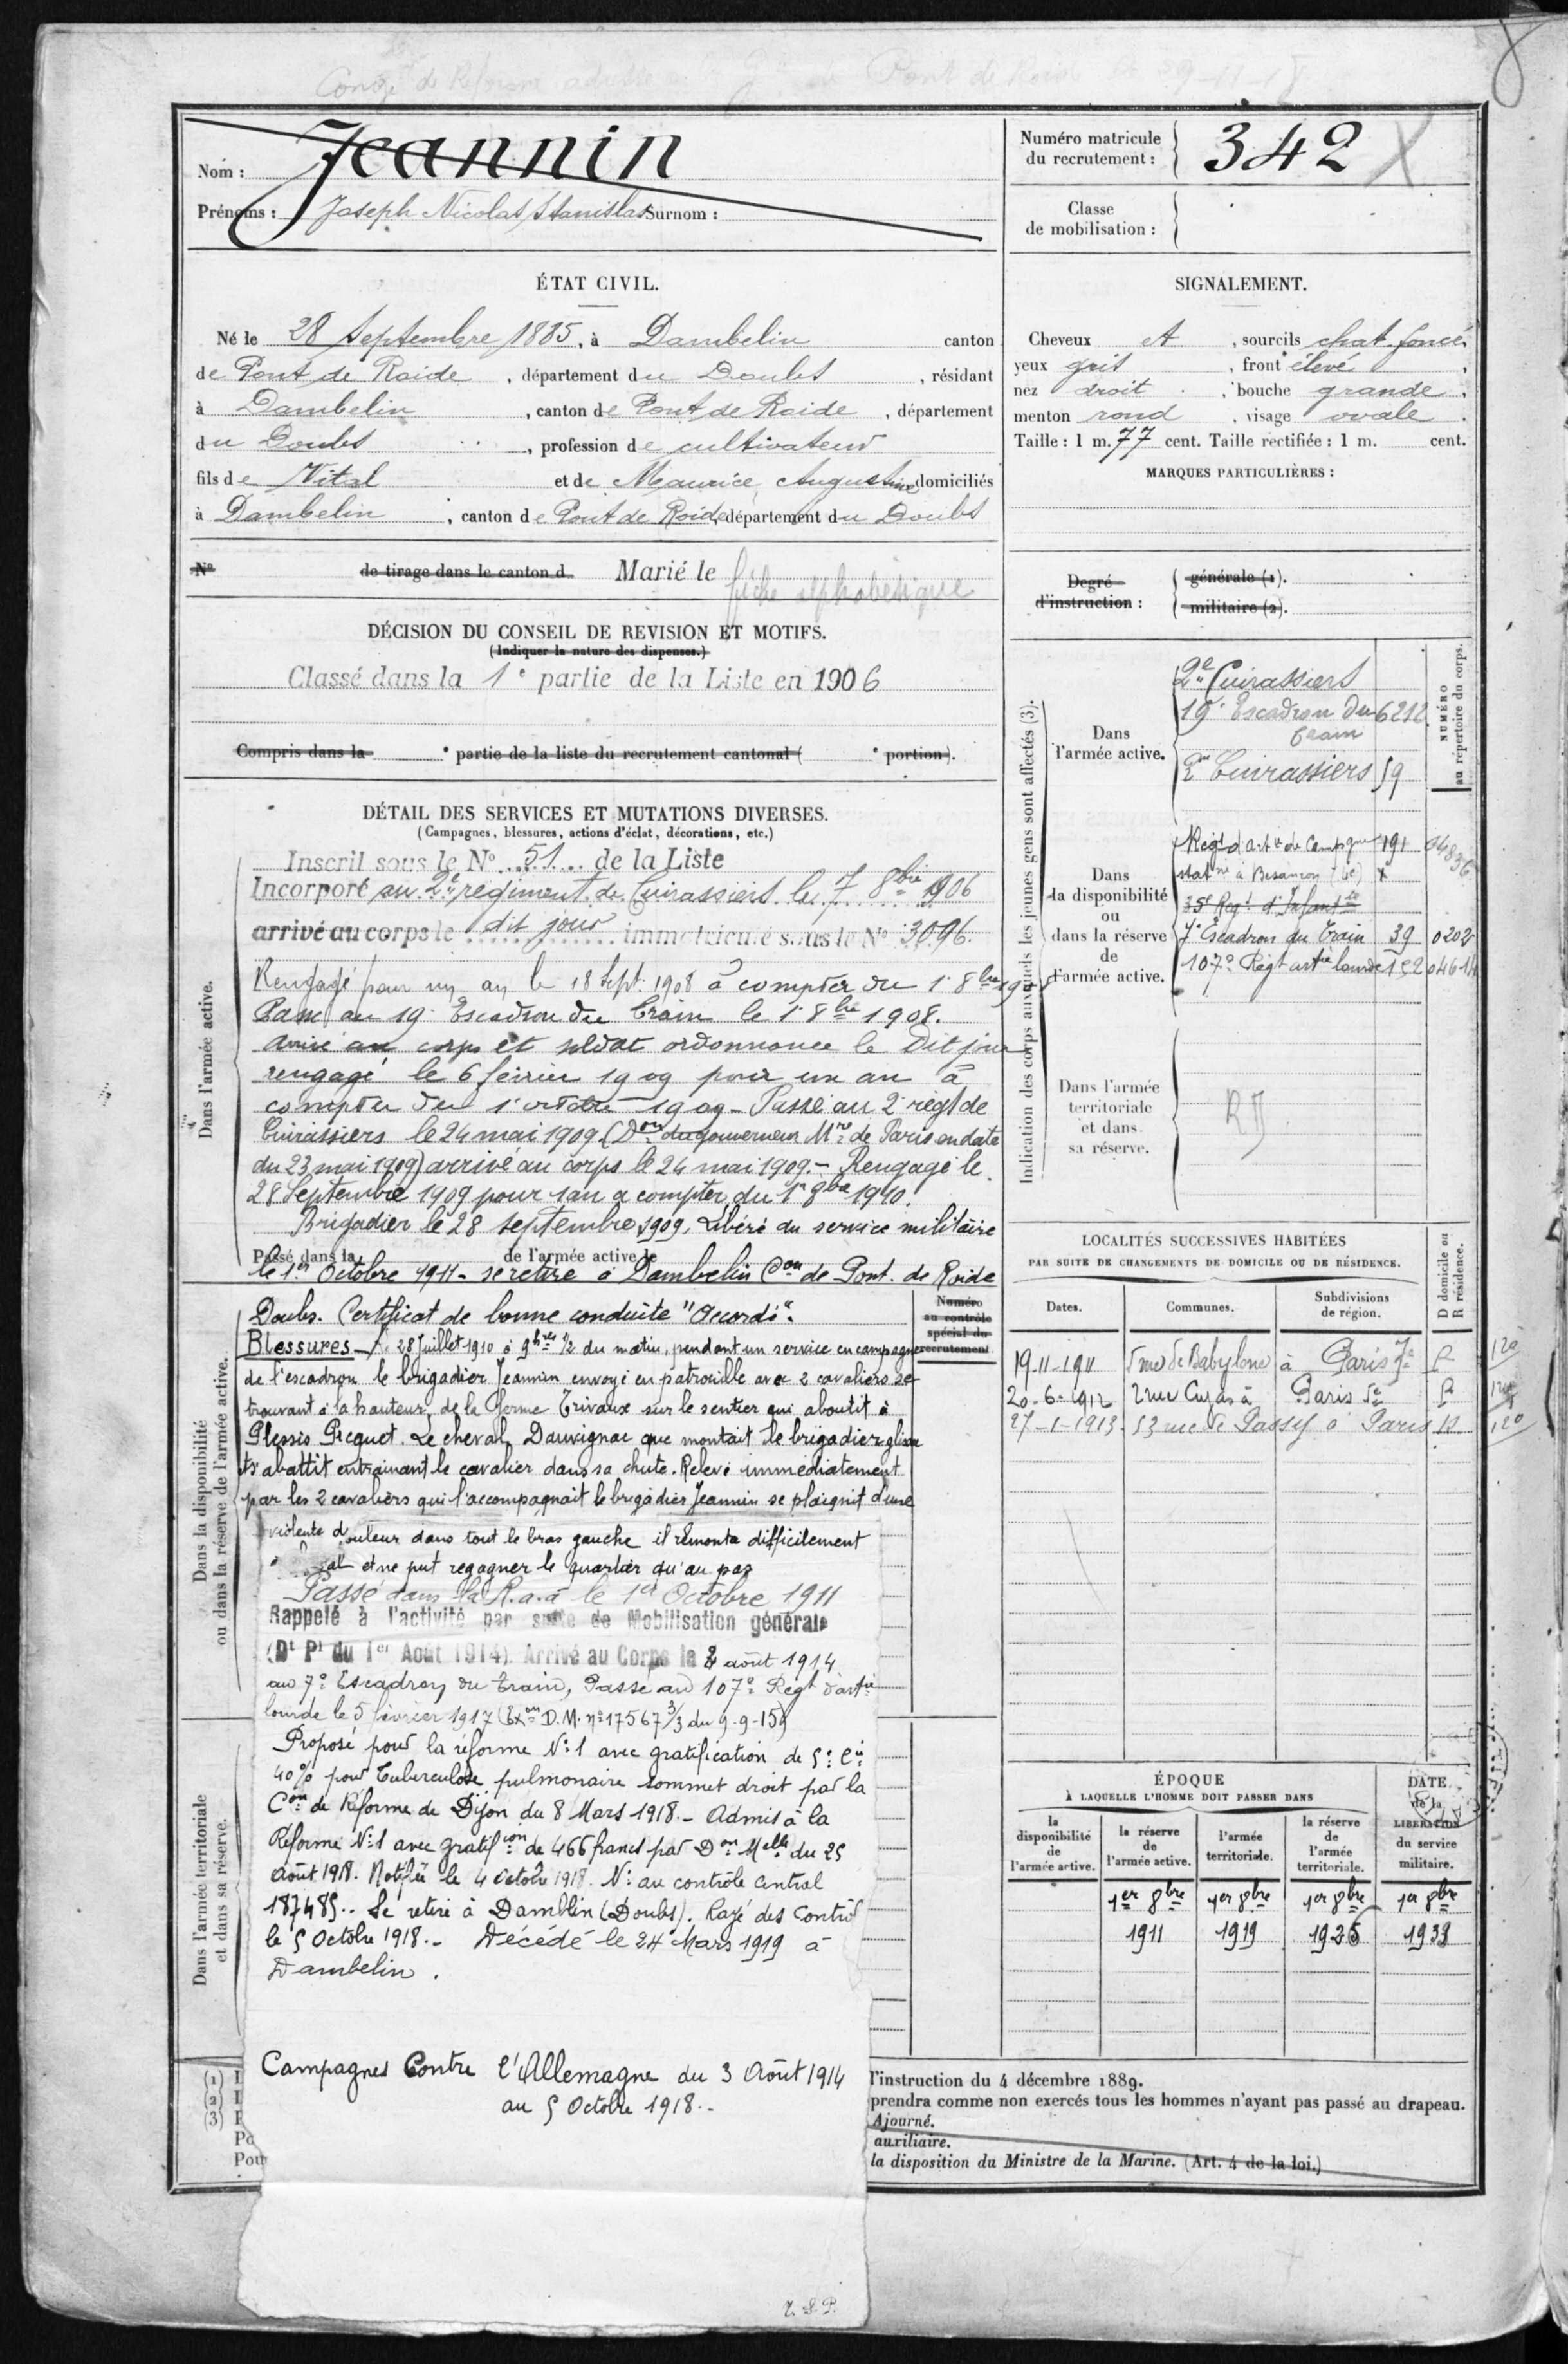 Nom : Jeannin
Prénoms : Joseph Nicolas Stanislas Surnom :
Numéro matricule
du recrutement : 342
Classe
de mobilisation :
ÉTAT CIVIL.
Né le 28 Septembre 1885, à Dambelin canton
de Pont de Roide, département du Doubs, résidant
à Dambelin, canton de Pont de Roide, département
du Doubs, profession de cultivateur
fils de Vital et de Maurice Augustine domiciliés
à Dambelin, canton de Pont de Roide, département du Doubs
No de tirage dans le canton d Marié le
fiche alphabétique
DÉCISION DU CONSEIL DE REVISION ET MOTIFS.
(Indiquer la nature des dispenses.)
Classé dans la 1e partie de la Liste en 1906
Compris dans la e partie de la liste du recrutement cantonal ( e portion).
DÉTAIL DES SERVICES ET MUTATIONS DIVERSES.
(Campagnes, blessures, actions d'éclat, décorations, etc.)
Dans l'armée active.
Inscrit sous le No 51 de la Liste
Incorporé au 2e régiment de Cuirassiers le 7 8bre 1906
arrivé au corps le dit jour immatriculé sous le No 3096.
Rengagé pour un an le 18 Sept. 1908 à compter du 1er 8bre 1908
Passé au 19e Escadron du Train le 1er 8bre 1908.
Arrivé au corps et soldat ordonnance le dit jour
rengagé le 6 février 1909 pour un an à
compter du 1er octobre 1909 - Passé au 2e régt de
Cuirassiers le 24 mai 1909 (Don du gouverneur Mre de Paris en date
du 23 mai 1909) arrivé au corps le 24 mai 1909. - Rengagé le
28 Septembre 1909 pour 1 an a compter du 1er 8bre 1910.
Brigadier le 28 septembre 1909, Libéré du service militaire
Passé dans la de l'armée active le
le 1er Octobre 1911 - se retire à Dambelin Con de Pont de Roide
Numéro
au contrôle
spécial du
recrutement
Dans la disponibilité
ou dans la réserve de l'armée active.
Doubs. Certificat de bonne conduite "Accordé".
Blessures - Le 28 Juillet 1910 à 9hres 1/2 du matin, pendant un service en campagne
de l'escadron le brigadier Jeannin envoyé en patrouille avec 2 cavaliers se
trouvant à la hauteur de la ferme Trivaux sur le sentier qui aboutit à
Plessis Picquet. Le cheval Dauvignac que montait le brigadier glissa
et s'abattit entrainant le cavalier dans sa chute. Relevé immédiatement
par les 2 cavaliers qui l'accompagnait le brigadier Jeannin se plaignit d'une
violente douleur dans tout le bras gauche il remonta difficilement
et ne put regagner le quartier qu'au pas
Passé dans la R.a.a le 1er Octobre 1911
Rappelé à l'activité par suite de Mobilisation générale
(Dt Pl du 1er Août 1914) Arrivé au Corps le 4 août 1914
au 7e Escadron du train, Passé au 107e Régt d'artie
lourde le 5 février 1917 (Exon D.M. no 17567 3/3 du 9-9-15)
Dans l'armée territoriale
et dans sa réserve.
Proposé pour la réforme No 1 avec gratification de 5e Cie
40% pour Tuberculose pulmonaire sommet droit par la
Con de Réforme de Dijon du 8 Mars 1918. - Admis à la
Réforme No 1 avec gratification de 466 francs par Don Melle du 25
Août 1918. Notifié le 4 Octobre 1918. No au contrôle Central
187485.. Se retire à Damblin (Doubs). Rayé des Contrôl
le 5 Octobre 1918. - Décédé le 24 Mars 1919 à
Dambelin.
Campagnes Contre l'Allemagne du 3 Août 1914
au 5 Octobre 1918..
T.S.P.
SIGNALEMENT.
Cheveux et, sourcils chat. foncé,
yeux gris, front élevé,
nez droit, bouche grande,
menton rond, visage ovale.
Taille : 1 m. 77 cent. Taille rectifiée : 1 m. cent.
MARQUES PARTICULIÈRES :
Degré
d'instruction :
générale (1).
militaire (2).
Indication des corps auxquels les jeunes gens sont affectés (3).
NUMÉRO
au répertoire du corps.
Dans
l'armée active.
2e Cuirassiers
19e Escadron du 6212
train
2me Cuirassiers 59
Dans
la disponibilité
ou
dans la réserve
de
l'armée active.
Régt d'artie de Campgne 191 04836
statné à Besançon (6e) X
35e Regt d'Infantie
7e Escadron du Train 39 0202
107e Régt artie lourde 152 04614
Dans l'armée
territoriale
et dans
sa réserve.
RD
LOCALITÉS SUCCESSIVES HABITÉES
PAR SUITE DE CHANGEMENTS DE DOMICILE OU DE RÉSIDENCE.
Dates. Communes. Subdivisions
de région. D domicile ou
R résidence.
19-11-1911 5 rue de Babylone à Paris 7e R 120
20-6-1912 2 rue Cujas à Paris 5e R 120
27-1-1913. 53 rue de Passy à Paris R 120
ÉPOQUE
À LAQUELLE L'HOMME DOIT PASSER DANS
la
disponibilité
de
l'armée active.
la réserve
de
l'armée active.
l'armée
territoriale.
la réserve
de
l'armée
territoriale.
DATE
de la
LIBÉRATION
du service
militaire.
1er 8bre 1er 8bre 1er 8bre 1er 8bre
1911 1919 1925 1931
l'instruction du 4 décembre 1889.
prendra comme non exercés tous les hommes n'ayant pas passé au drapeau.
Ajourné.
auxiliaire.
la disposition du Ministre de la Marine. (Art. 4 de la loi.)
(1)
(2)
(3)